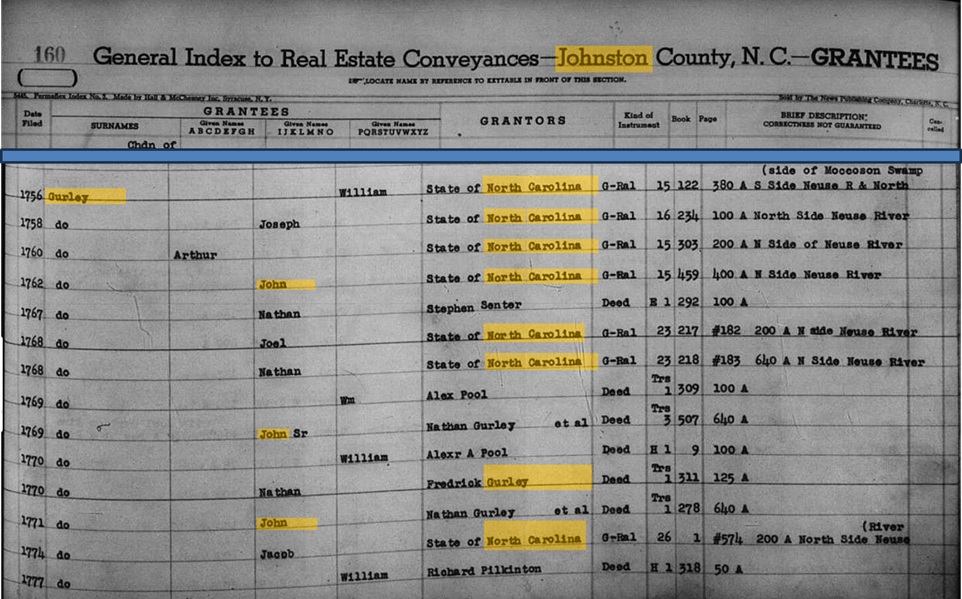 160 General Index to Real Estate Conveyances—Johnston County, N. C.—GRANTEES
LOCATE NAME BY REFERENCE TO KEYTABLE IN FRONT OF THIS SECTION.
Permaflex Index No. 3. Made by Hall & McChesney Inc, Syracuse, N. Y. Sold by The News Publishing Company, Charlotte, N. C.
Date Filed GRANTEES GRANTORS Kind of Instrument Book Page BRIEF DESCRIPTION: CORRECTNESS NOT GUARANTEED Can-celled
SURNAMES Given Names ABCDEFGH Given Names IJKLMNO Given Names PQRSTUVWXYZ
Chdn of
(side of Moccoson Swamp
1756 Gurley William State of North Carolina G-Ral 15 122 380 A S Side Neuse R & North
1758 do Joseph State of North Carolina G-Ral 16 234 100 A North Side Neuse River
1760 do Arthur State of North Carolina G-Ral 15 303 200 A N Side of Neuse River
1762 do John State of North Carolina G-Ral 15 459 400 A N Side Neuse River
1767 do Nathan Stephen Senter Deed E 1 292 100 A
1768 do Joel State of North Carolina G-Ral 23 217 #182 200 A N side Neuse River
1768 do Nathan State of North Carolina G-Ral 23 218 #183 640 A N Side Neuse River
1769 do Wm Alex Pool Deed Trs 1 309 100 A
1769 do John Sr Nathan Gurley et al Deed Trs 3 507 640 A
1770 do William Alexr A Pool Deed H 1 9 100 A
1770 do Nathan Fredrick Gurley Deed Trs 1 311 125 A
1771 do John Nathan Gurley et al Deed Trs 1 278 640 A
(River
1774 do Jacob State of North Carolina G-Ral 26 1 #574 200 A North Side Neuse
1777 do William Richard Pilkinton Deed H 1 318 50 A